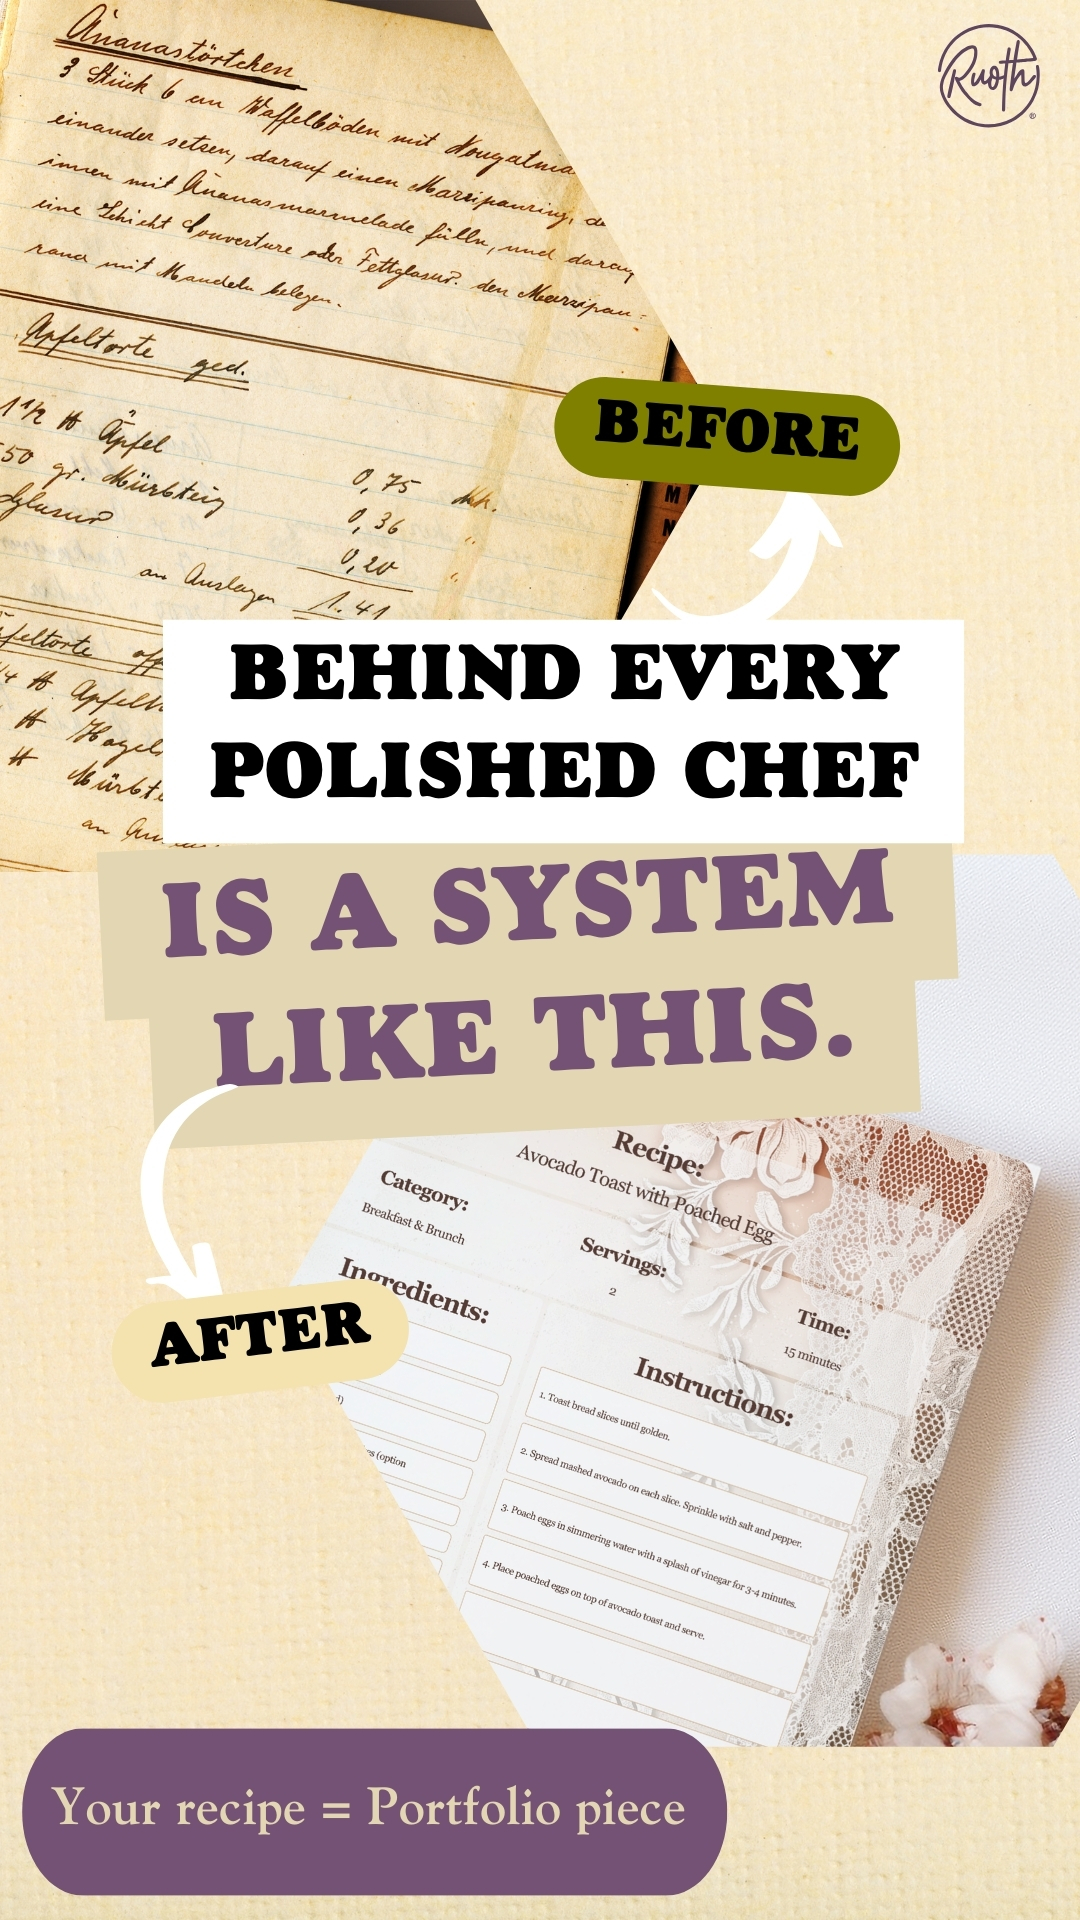 Ananastörtchen
3 Stück 6 cm Waffelböden mit Nougatma
einander setzen, darauf einen Marzipanring, de
innen mit Ananasmarmelade füllen, und darauf
eine Schicht Couverture oder Fettglasur. den Marzipan-
rand mit Mandeln belegen.
Apfeltorte ged.
1 1/2 ℔ Äpfel 0,75 Mk.
50 gr. Mürbteig 0,36 "
0,20 "
an Auslagen 1.41
Ruoth
®
BEFORE
M
N
BEHIND EVERY
POLISHED CHEF
IS A SYSTEM
LIKE THIS.
AFTER
Recipe:
Avocado Toast with Poached Egg
Category:
Breakfast & Brunch
Servings:
2
Time:
15 minutes
Ingredients:
(option
Instructions:
1. Toast bread slices until golden.
2. Spread mashed avocado on each slice. Sprinkle with salt and pepper.
3. Poach eggs in simmering water with a splash of vinegar for 3-4 minutes.
4. Place poached eggs on top of avocado toast and serve.
Your recipe = Portfolio piece